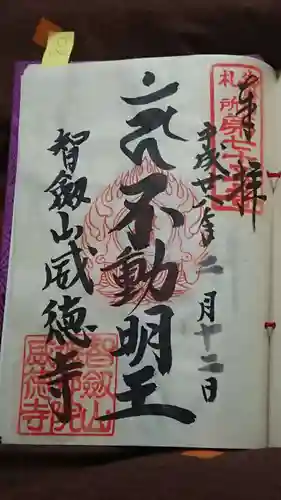 奉拝
札所第七十
平成廿八年二月十二日
不動明王
智劔山威徳寺
智劔山
威徳寺